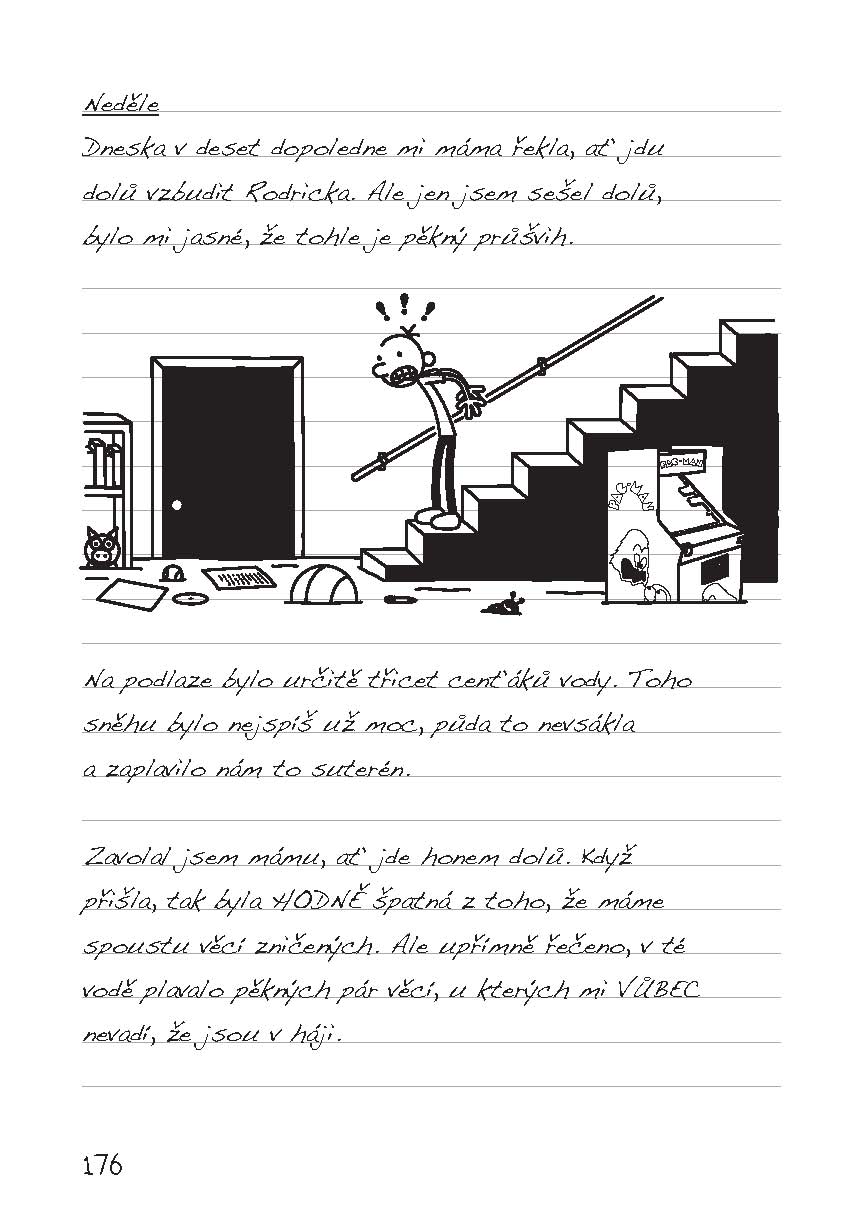 Neděle
Dneska v deset dopoledne mi máma řekla, ať jdu
dolů vzbudit Rodricka. Ale jen jsem sešel dolů,
bylo mi jasné, že tohle je pěkný průšvih.
! ! !
PAC-MAN
PAC-MAN
Na podlaze bylo určitě třicet centʼáků vody. Toho
sněhu bylo nejspíš už moc, půda to nevsákla
a zaplavilo nám to suterén.
Zavolal jsem mámu, ať jde honem dolů. Když
přišla, tak byla HODNĚ špatná z toho, že máme
spoustu věcí zničených. Ale upřímně řečeno, v té
vodě plavalo pěkných pár věcí, u kterých mi VŮBEC
nevadí, že jsou v háji.
176